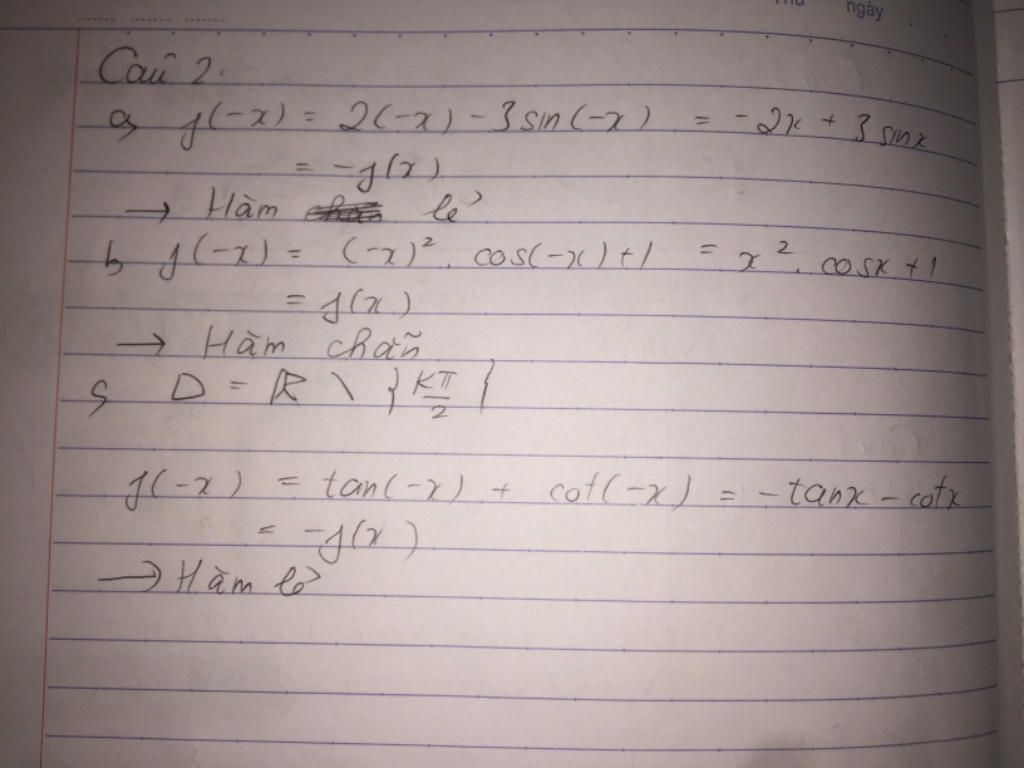 Thứ
ngày
Câu 2.
a, f(-x) = 2(-x) - 3sin(-x) = -2x + 3sinx
= -f(x)
→ Hàm lẻ
b, f(-x) = (-x)². cos(-x)+1 = x². cosx+1
= f(x)
→ Hàm chẵn
c, D = ℝ \ {kπ/2}
f(-x) = tan(-x) + cot(-x) = -tanx - cotx
= -f(x)
→ Hàm lẻ